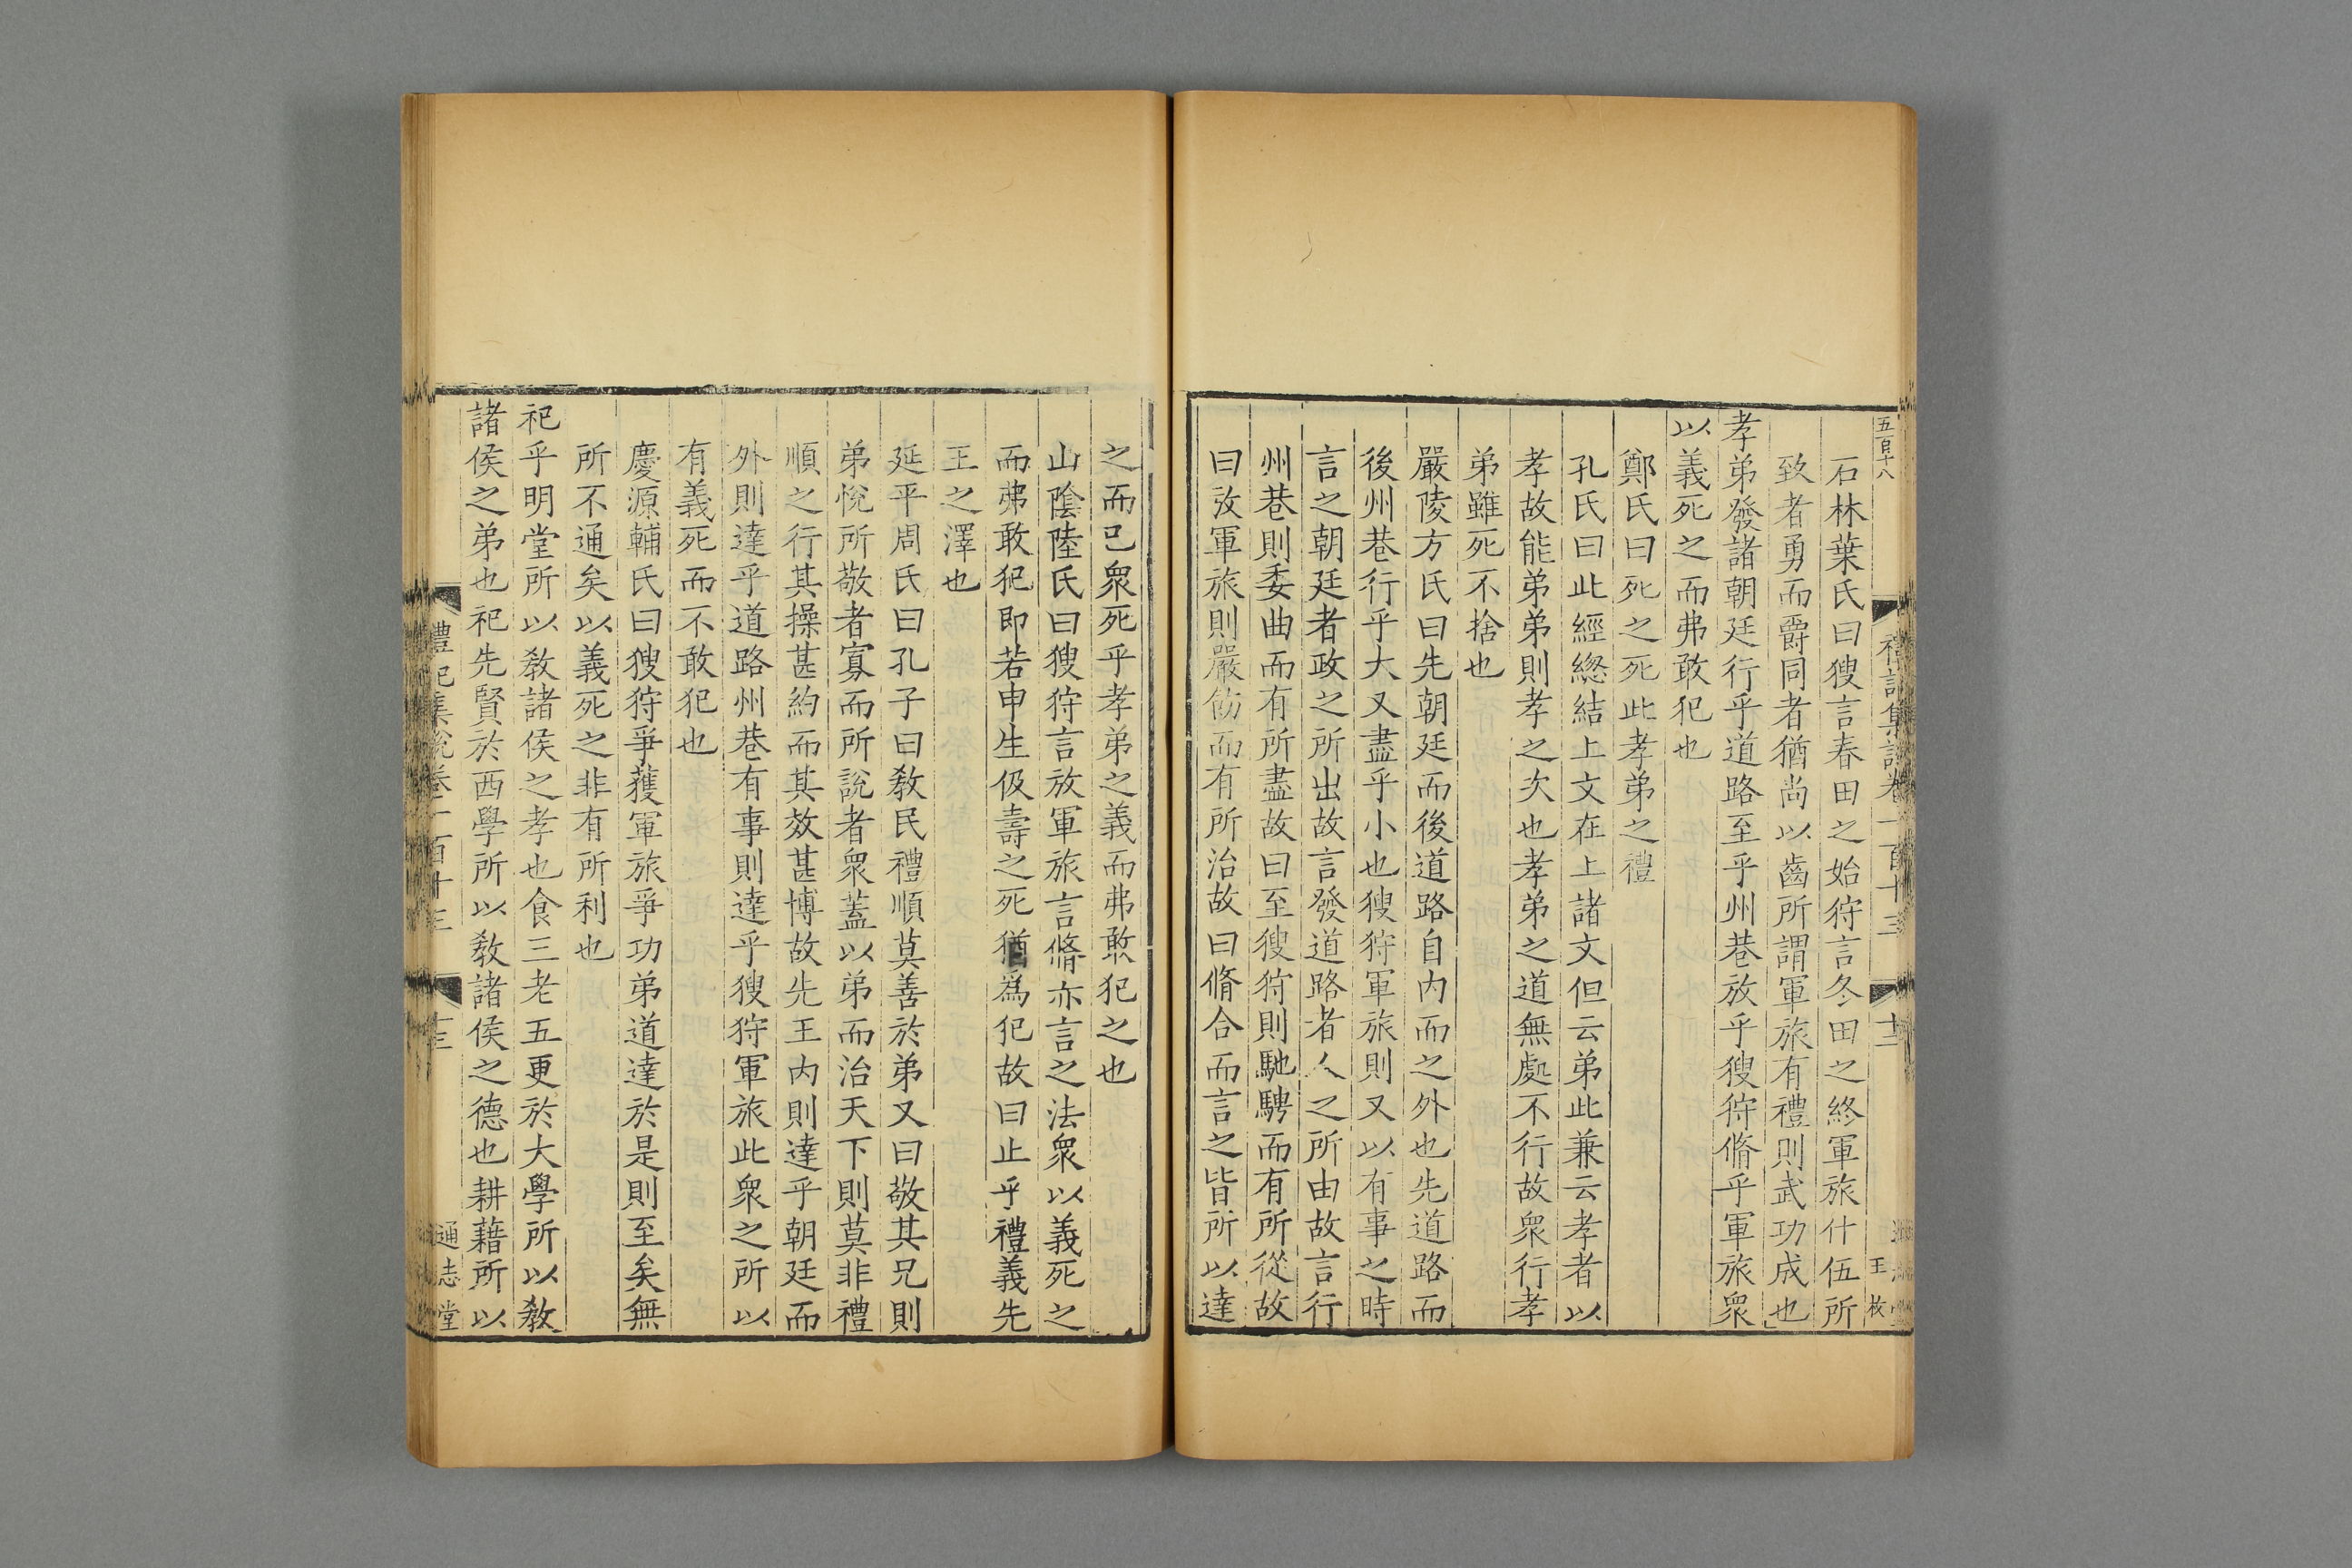 五百十八
禮記集說卷一百十三
十三
王枚
石林葉氏曰獀言春田之始狩言冬田之終軍旅什伍所
致者勇而爵同者猶尚以齒所謂軍旅有禮則武功成也
孝弟發諸朝廷行乎道路至乎州巷放乎獀狩脩乎軍旅衆
以義死之而弗敢犯也
鄭氏曰死之死此孝弟之禮
孔氏曰此經緫結上文在上諸文但云弟此兼云孝者以
孝故能弟弟則孝之次也孝弟之道無處不行故衆行孝
弟雖死不捨也
嚴陵方氏曰先朝廷而後道路自内而之外也先道路而
後州巷行乎大又盡乎小也獀狩軍旅則又以有事之時
言之朝廷者政之所出故言發道路者人之所由故言行
州巷則委曲而有所盡故曰至獀狩則馳騁而有所從故
曰放軍旅則嚴飭而有所治故曰脩合而言之皆所以達
之而已衆死乎孝弟之義而弗敢犯之也
山陰陸氏曰獀狩言放軍旅言脩亦言之法衆以義死之
而弗敢犯即若申生伋壽之死猶爲犯故曰止乎禮義先
王之澤也
延平周氏曰孔子曰敎民禮順莫善於弟又曰敬其兄則
弟悅所敬者寡而所說者衆蓋以弟而治天下則莫非禮
順之行其操甚約而其效甚博故先王内則達乎朝廷而
外則達乎道路州巷有事則達乎獀狩軍旅此衆之所以
有義死而不敢犯也
慶源輔氏曰獀狩爭獲軍旅爭功弟道達於是則至矣無
所不通矣以義死之非有所利也
祀乎明堂所以敎諸侯之孝也食三老五更於大學所以敎
諸侯之弟也祀先賢於西學所以敎諸侯之德也耕藉所以
禮記集說卷一百十三
十三
通志堂